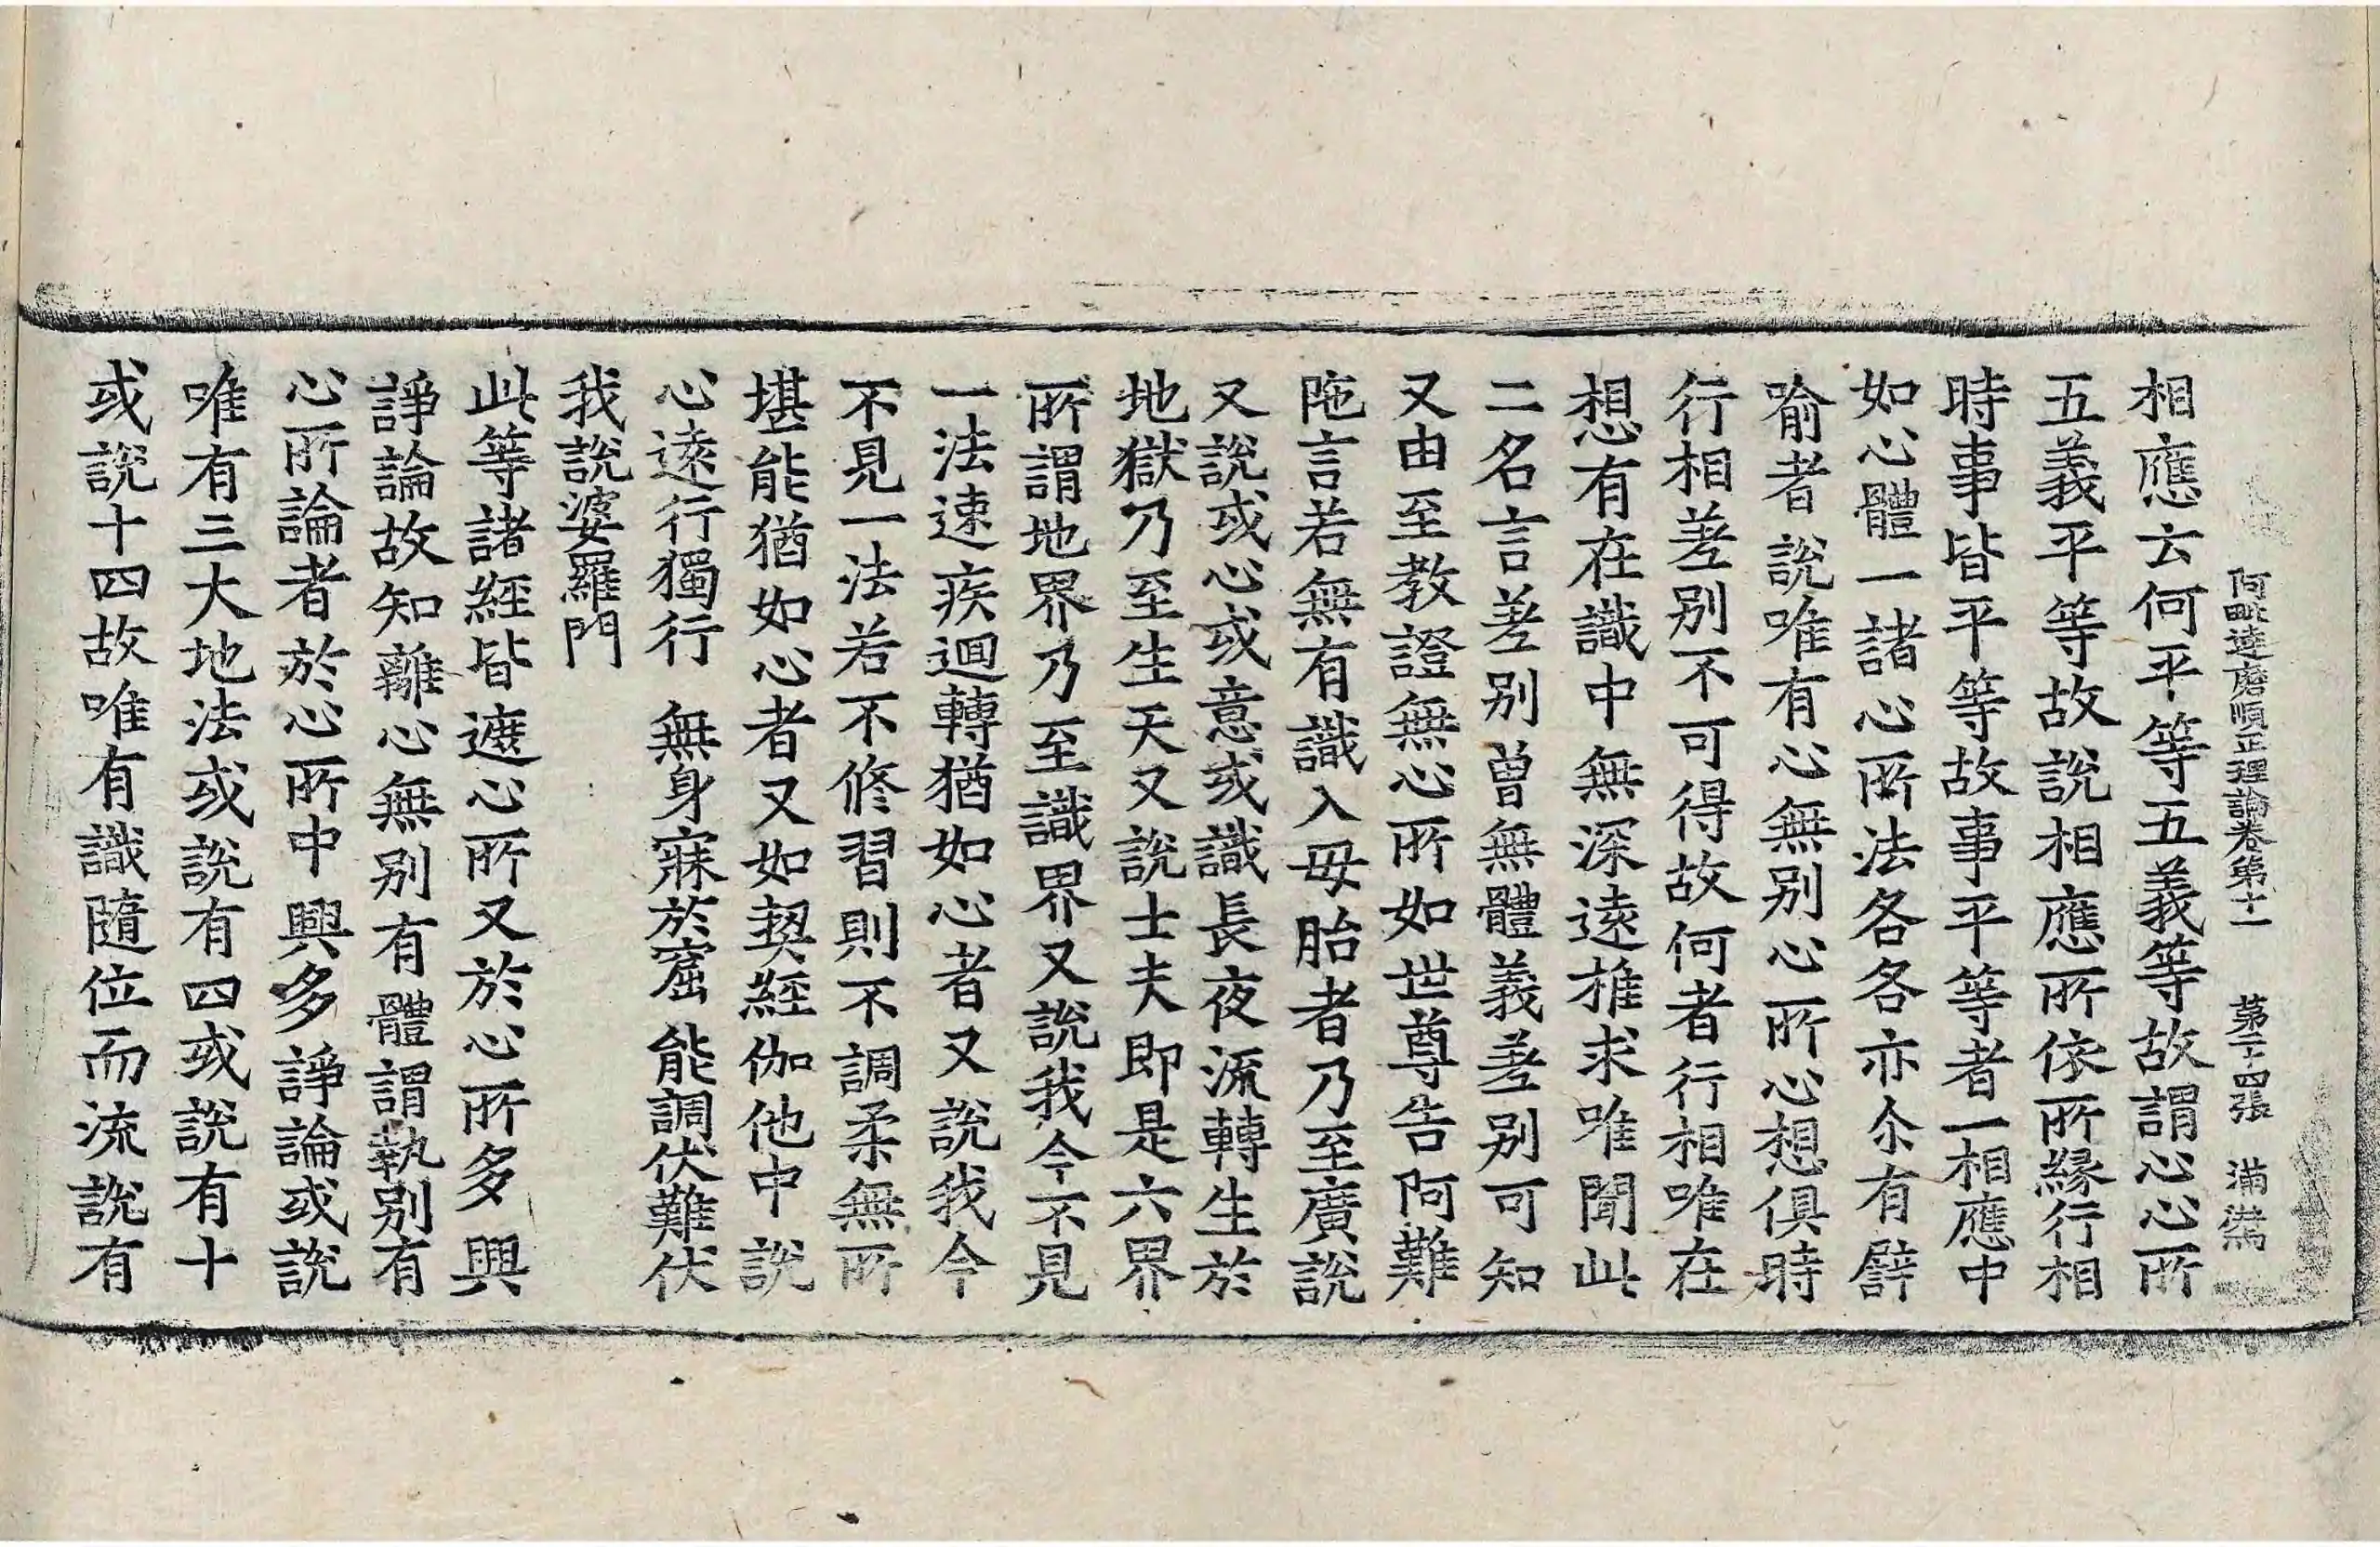 阿毗達磨順正理論卷第十一　第二十四張　滿
相應云何平等五義等故謂心心所
五義平等故說相應所依所緣行相
時事皆平等故事平等者一相應中
如心體一諸心所法各各亦尒有譬
喻者說唯有心無別心所心想俱時
行相差別不可得故何者行相唯在
想有在識中無深遠推求唯聞此
二名言差別曾無體義差別可知
又由至教證無心所如世尊告阿難
陁言若無有識入母胎者乃至廣說
又說或心或意或識長夜流轉生於
地獄乃至生天又說士夫即是六界
所謂地界乃至識界又說我今不見
一法速疾迴轉猶如心者又說我今
不見一法若不修習則不調柔無所
堪能猶如心者又如契經伽他中說
心遠行獨行　無身寐於窟　能調伏難伏
我說婆羅門
此等諸經皆遮心所又於心所多興
諍論故知離心無別有體謂執別有
心所論者於心所中興多諍論或說
唯有三大地法或說有四或說有十
或說十四故唯有識隨位而流說有